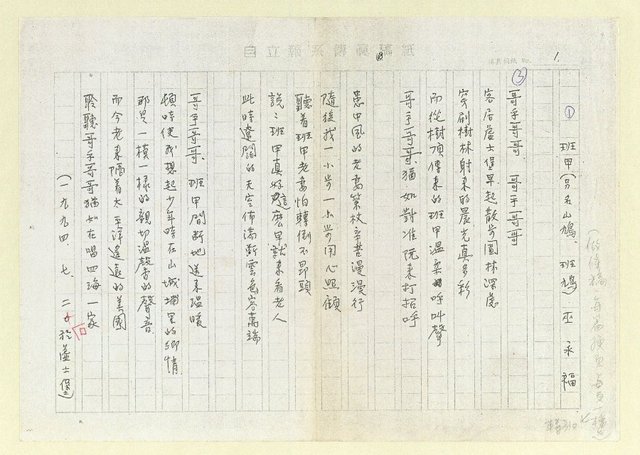 1.
①
班甲(另名山鳩、班鳩) 巫永福
③
哥乎哥哥、哥乎哥哥
客居屋士堡早起散步園林深處
穿刷樹林射來的晨光真多彩
而從樹頂傳來的班甲溫柔呼叫聲
哥乎哥哥猶如對准阮來打招呼
患中風的老妻策杖辛苦漫漫行
隨後我一小步一小步用心照顧
聽着班甲老妻怕轉倒不昂頭
說:班甲真好膽麼甲就來看老人
此時遼闊的天空佈滿彩雲
哥乎哥哥、班甲間斷地送來溫暖
頓時使我想起少年時在山城埔里的鄉情
那是一模一樣的親切溫馨的聲音
而今老來隔着太平洋遙遠的美國
聆聽哥乎哥哥猶如在唱四海一家
(一九九四、七、二 於 士堡)